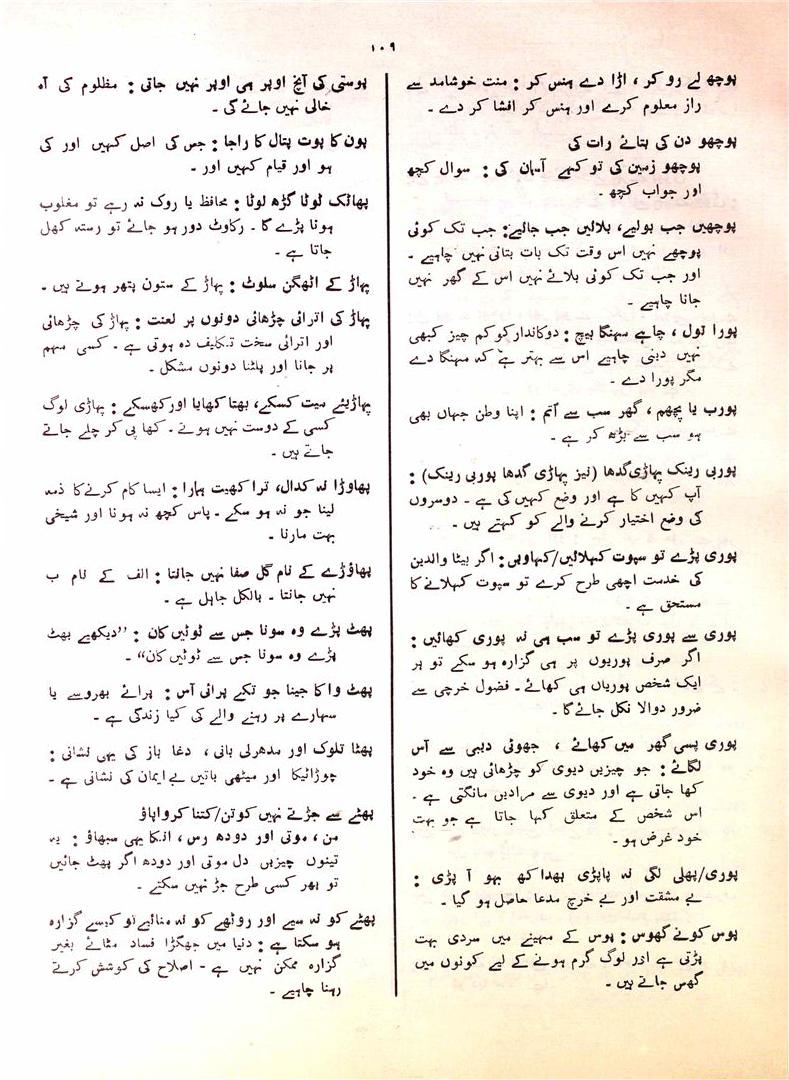 ۱۰۹
پوچھ لے رو کر ، اڑا دے ہنس کر : منت خوشامد سے
راز معلوم کرے اور ہنس کر افشا کر دے ۔
پوچھو دن کی بتائے رات کی
پوچھو زمین کی تو کہے آسمان کی : سوال کچھ
اور جواب کچھ ۔
پوچھیں جب بولیے، بلائیں جب جائیے: جب تک کوئی
پوچھے نہیں اس وقت تک بات بتانی نہیں چاہیے ۔
اور جب تک کوئی بلائے نہیں اس کے گھر نہیں
جانا چاہیے ۔
پورا تول ، چاہے مہنگا بیچ : دوکاندار کو کم چیز کبھی
نہیں دینی چاہیے اس سے بہتر ہے کہ مہنگا دے
مگر پورا دے ۔
پورب یا پچھم ، گھر سب سے اُتم : اپنا وطن جہاں بھی
ہو سب سے بڑھ کر ہے ۔
پوربی رینک پہاڑی گدھا (نیز پہاڑی گدھا پوربی رینک) :
آپ کہیں کا ہے اور وضع کہیں کی ہے ۔ دوسروں
کی وضع اختیار کرنے والے کو کہتے ہیں ۔
پوری پڑے تو سپوت کہلائیں/کہاویں: اگر بیٹا والدین
کی خدمت اچھی طرح کرے تو سپوت کہلانے کا
مستحق ہے ۔
پوری سے پوری پڑے تو سب ہی نہ پوری کھائیں :
اگر صرف پوریوں پر ہی گزارہ ہو سکے تو ہر
ایک شخص پوریاں ہی کھائے ۔ فضول خرچی سے
ضرور دوالا نکل جائے گا ۔
پوری پسی گھر میں کھائے ، جھوٹی دیبی سے آس
لگائے : جو چیزیں دیوی کو چڑھائی ہیں وہ خود
کھا جاتی ہے اور دیوی سے مرادیں مانگتی ہے ۔
اس شخص کے متعلق کہا جاتا ہے جو بہت
خود غرض ہو ۔
پوری/پھلی لگی نہ پاپڑی بھدا کھ بہو آ پڑی :
بے مشقت اور بے خرچ مدعا حاصل ہو گیا ۔
پوس کونے گھوس : پوس کے مہینے میں سردی بہت
پڑتی ہے اور لوگ گرم ہونے کے لیے کونوں میں
گھس جاتے ہیں ۔
پوستی کی آنچ اوپر ہی اوپر نہیں جاتی : مظلوم کی آہ
خالی نہیں جائے گی ۔
پون کا پوت پتال کا راجا : جس کی اصل کہیں اور کی
ہو اور قیام کہیں اور ۔
پھاٹک ٹوٹا گڑھ لوٹا : محافظ یا روک نہ رہے تو مغلوب
ہونا پڑے گا ۔ رکاوٹ دور ہو جائے تو رستہ کھل
جاتا ہے ۔
پہاڑ کے اٹھگن سلوٹ : پہاڑ کے ستون پتھر ہوتے ہیں ۔
پہاڑ کی اترائی چڑھائی دونوں پر لعنت : پہاڑ کی چڑھائی
اور اترائی سخت تکلیف دہ ہوتی ہے ۔ کسی مہم
پر جانا اور پلٹنا دونوں مشکل ۔
پہاڑیئے میت کسکے، بھتا کھایا اور کھسکے : پہاڑی لوگ
کسی کے دوست نہیں ہوتے ۔ کھا پی کر چلے جاتے
جاتے ہیں ۔
پھاوڑا نہ کدال، ترا کھیت ہمارا : ایسا کام کرنے کا ذمہ
لینا جو نہ ہو سکے ۔ پاس کچھ نہ ہونا اور شیخی
بہت مارنا ۔
پھاؤڑے کے نام گل صفا نہیں جانتا : الف کے نام ب
نہیں جانتا ۔ بالکل جاہل ہے ۔
پھٹ پڑے وہ سونا جس سے ٹوٹیں کان : ”دیکھیے پھٹ
پڑے وہ سونا جس سے ٹوٹیں کان“ ۔
پھٹ وا کا جینا جو تکے پرائی آس : پرائے بھروسے یا
سہارے پر رہنے والے کی کیا زندگی ہے ۔
پھٹا تلوک اور مدھرلی بانی ، دغا باز کی یہی نشانی :
چوڑا ٹیکا اور میٹھی باتیں بے ایمان کی نشانی ہے ۔
پھٹے سے جڑتے نہیں کوتن/کتنا کرو اپاؤ
من ، موتی اور دودھ رس ، انکا یہی سبھاؤ : یہ
تینوں چیزیں دل موتی اور دودھ اگر پھٹ جائیں
تو پھر کسی طرح جڑ نہیں سکتے ۔
پھٹے کو نہ سیے اور روٹھے کو نہ منائیے تو کیسے گزارہ
ہو سکتا ہے : دنیا میں جھگڑا فساد مٹائے بغیر
گزارہ ممکن نہیں ہے ۔ اصلاح کی کوشش کرتے
رہنا چاہیے ۔